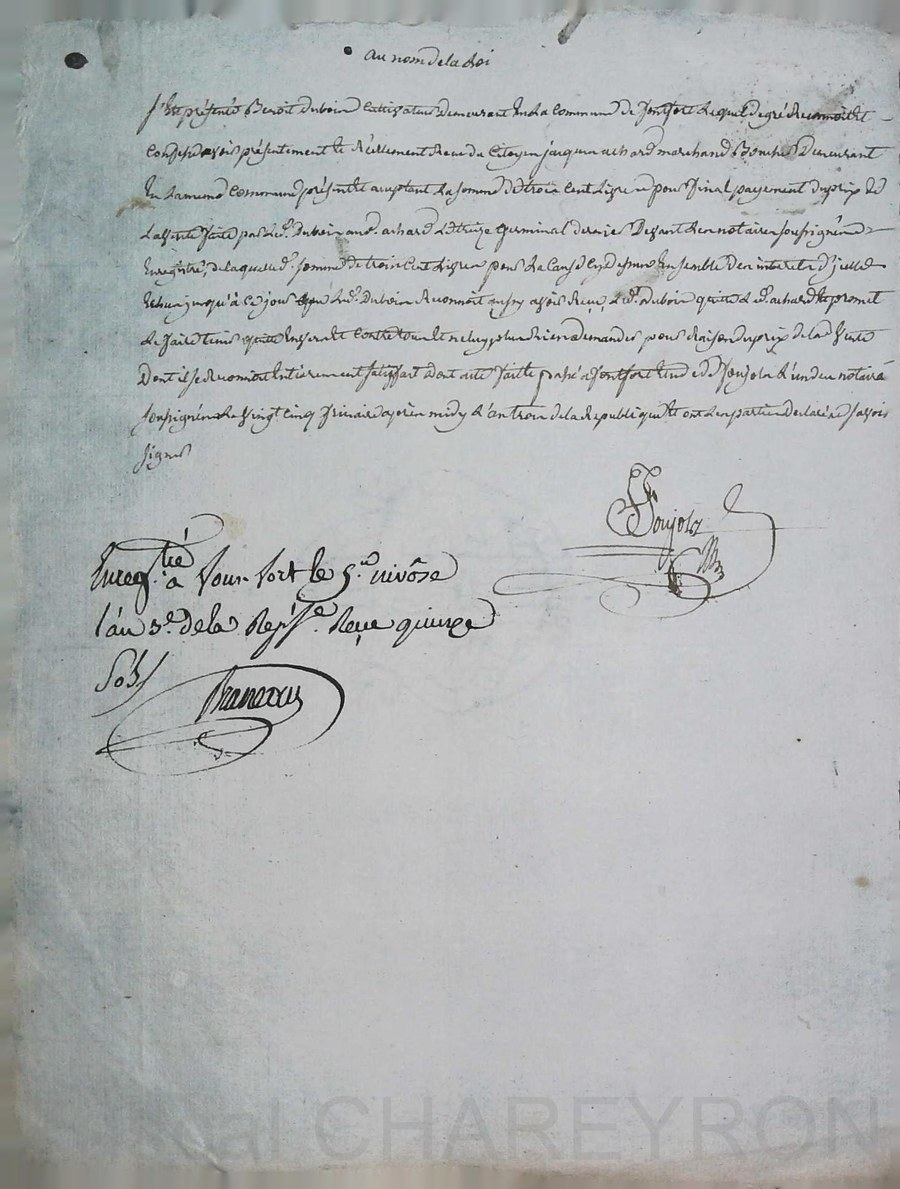 au nom de la Loi
S'Est présenté Benoit Duboin Cultivateur Demeurant En La Commune De fontfort Lequel de gré Reconnoit Et
Confesse avoir présentement Et Réellement Receu du Citoyen jacques achard marchand Boucher Demeurant
En La meme Commune présent Et acceptant La somme de trois Cent Livres pour final payement du prix De
La Vente faite par Led. Duboin aud. achard Le treize Germinal dernier Devant Le notaire soussigné
Enregistré, de laquelle d. somme de trois Cent Livres pour La Cause Cy dessus Ensemble des interets d'jcelle
Echus jusqu'à Ce jour que Led. Duboin Reconnoit aussy avoir Receu Led. Duboin quitte Led. achard Et promet
Le faire tenir quitte Envers Et Contre tous Et ne luy plus Rien Demander pour Raison du prix de la Vente
Dont il se Reconnoit Entierement satisfait Dont acte fait Et passé a fontfort Etude de Ponjola L'un des notaire
soussigné Le Vingt Cinq frimaire après midy L'an trois de la Republique Et ont Les parties declaré ne savoir
signer
Ponjola
Enregtré a Fonfort le 5.e nivôse
l'an 3.e de la Rep.e Reçu quinze
Sols